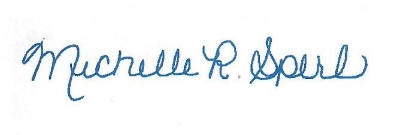 Michelle R. Sperl